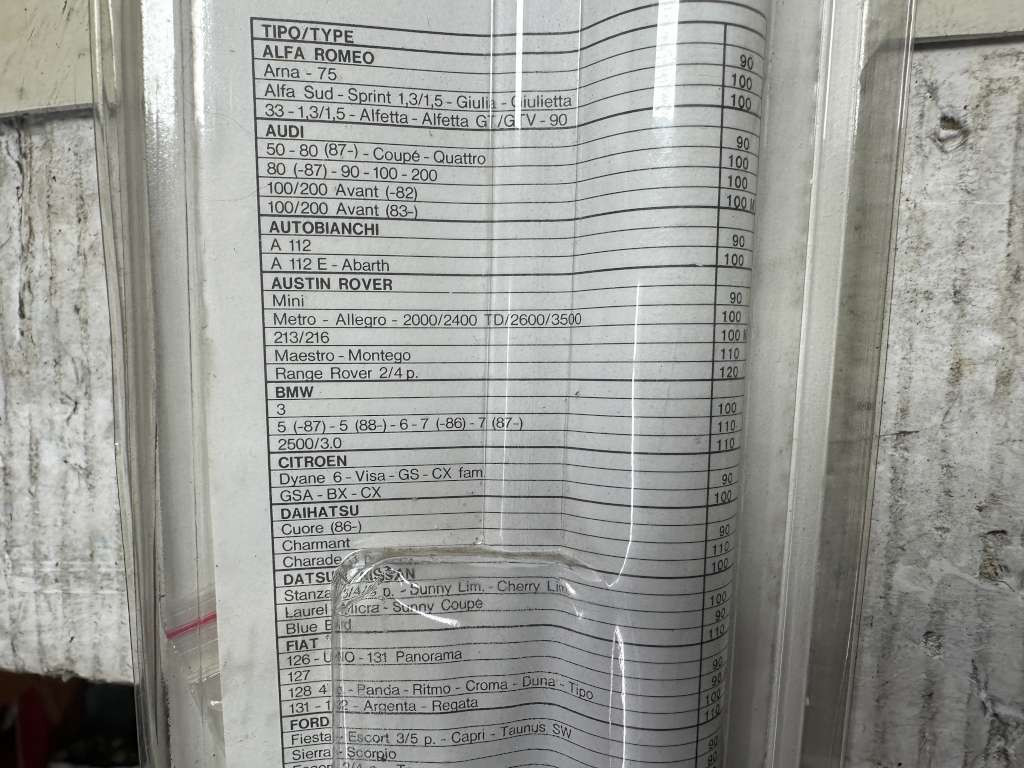 TIPO/TYPE
ALFA ROMEO
Arna - 75 90
Alfa Sud - Sprint 1,3/1,5 - Giulia - Giulietta 100
33 - 1,3/1,5 - Alfetta - Alfetta GT/GTV - 90 100
AUDI
50 - 80 (87-) - Coupé - Quattro 90
80 (-87) - 90 - 100 - 200 100
100/200 Avant (-82) 100
100/200 Avant (83-) 100 M
AUTOBIANCHI
A 112 90
A 112 E - Abarth 100
AUSTIN ROVER
Mini 90
Metro - Allegro - 2000/2400 TD/2600/3500 100
213/216 100
Maestro - Montego 110
Range Rover 2/4 p. 120
BMW
3 100
5 (-87) - 5 (88-) - 6 - 7 (-86) - 7 (87-) 110
2500/3.0 110
CITROEN
Dyane 6 - Visa - GS - CX fam. 90
GSA - BX - CX 100
DAIHATSU
Cuore (86-) 90
Charmant 110
Charade 100
DATSUN NISSAN
Stanza p. - Sunny Lim. - Cherry 100
Laurel - Micra - Sunny Coupé 90
Blue Bird 110
FIAT
126 - UNO - 131 Panorama 90
127 90
128 4 p. - Panda - Ritmo - Croma - Duna - Tipo 100
131 - 132 - Argenta - Regata 110
FORD
Fiesta - Escort 3/5 p. - Capri - Taunus SW 90
Sierra - Scorpio